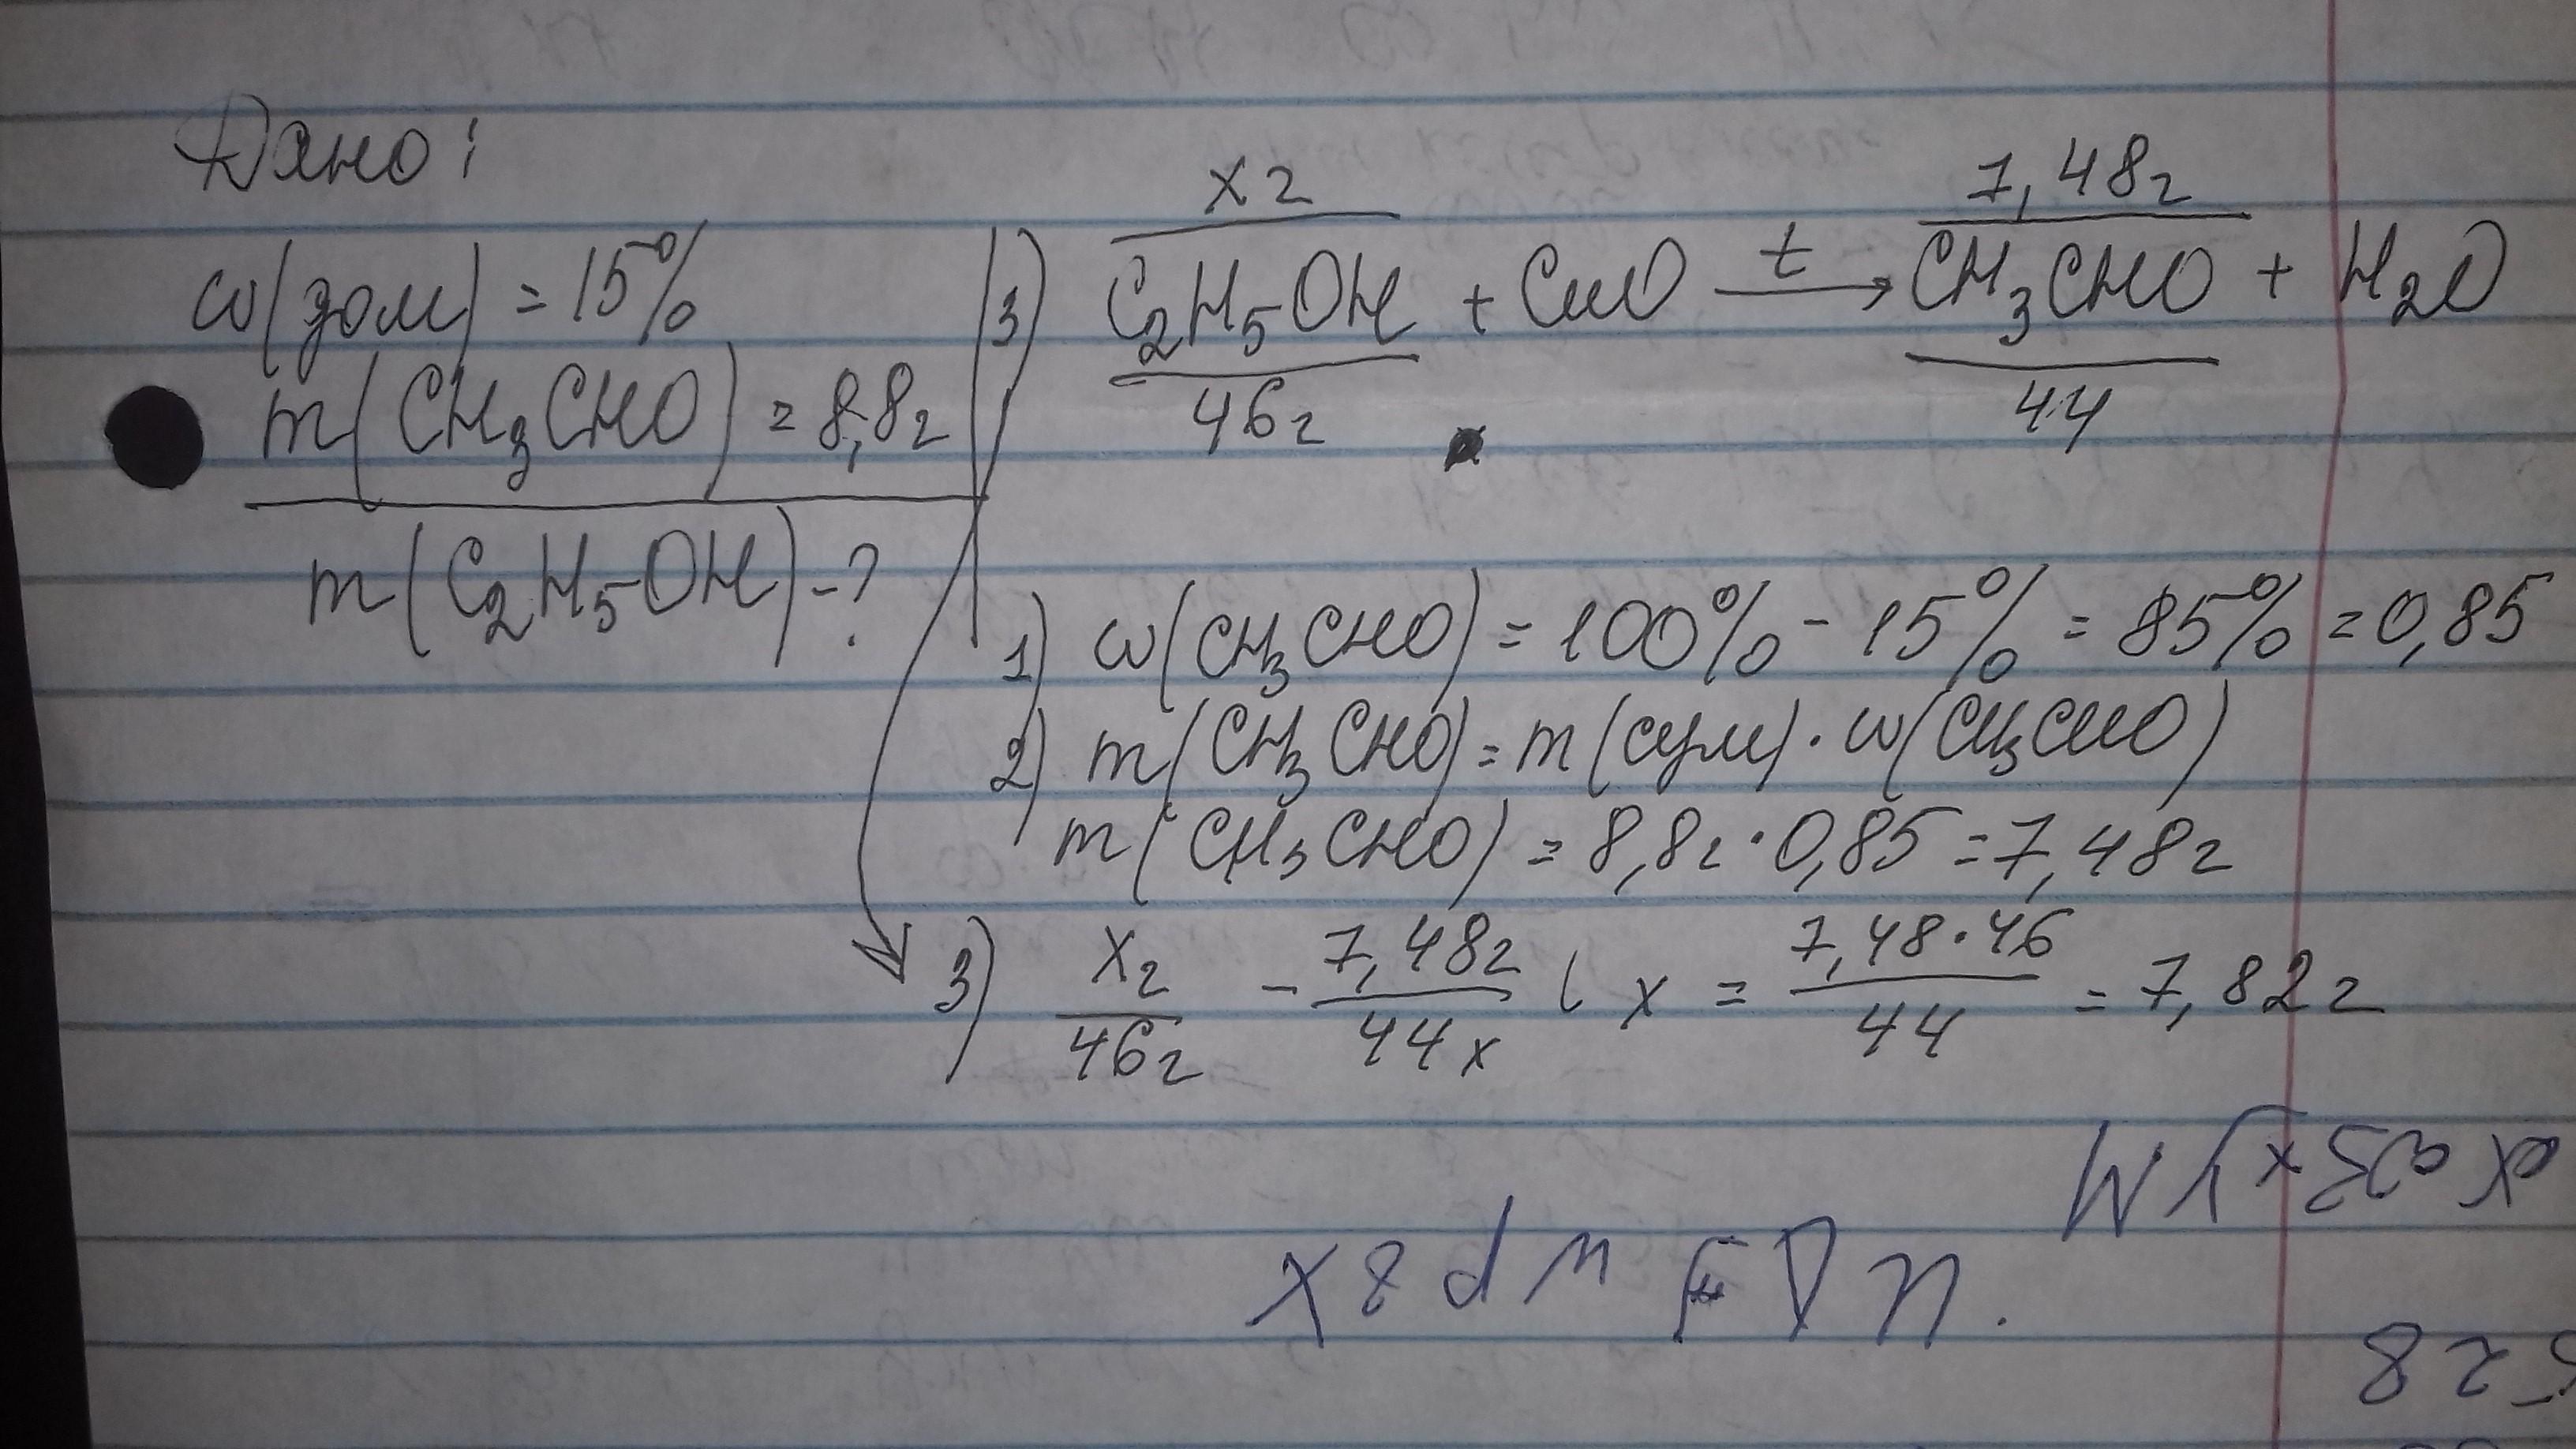 Дано:
w(дом) = 15%
m(CH₃CHO) = 8,8г
m(C₂H₅OH) - ?
xг 7,48г
3) C₂H₅OH + CuO t→ CH₃CHO + H₂O
46г 44
1) w(CH₃CHO) = 100% - 15% = 85% = 0,85
2) m(CH₃CHO) = m(сум) · w(CH₃CHO)
m(CH₃CHO) = 8,8г · 0,85 = 7,48г
3) xг/46г - 7,48г/44x ; x = 7,48·46/44 = 7,82г